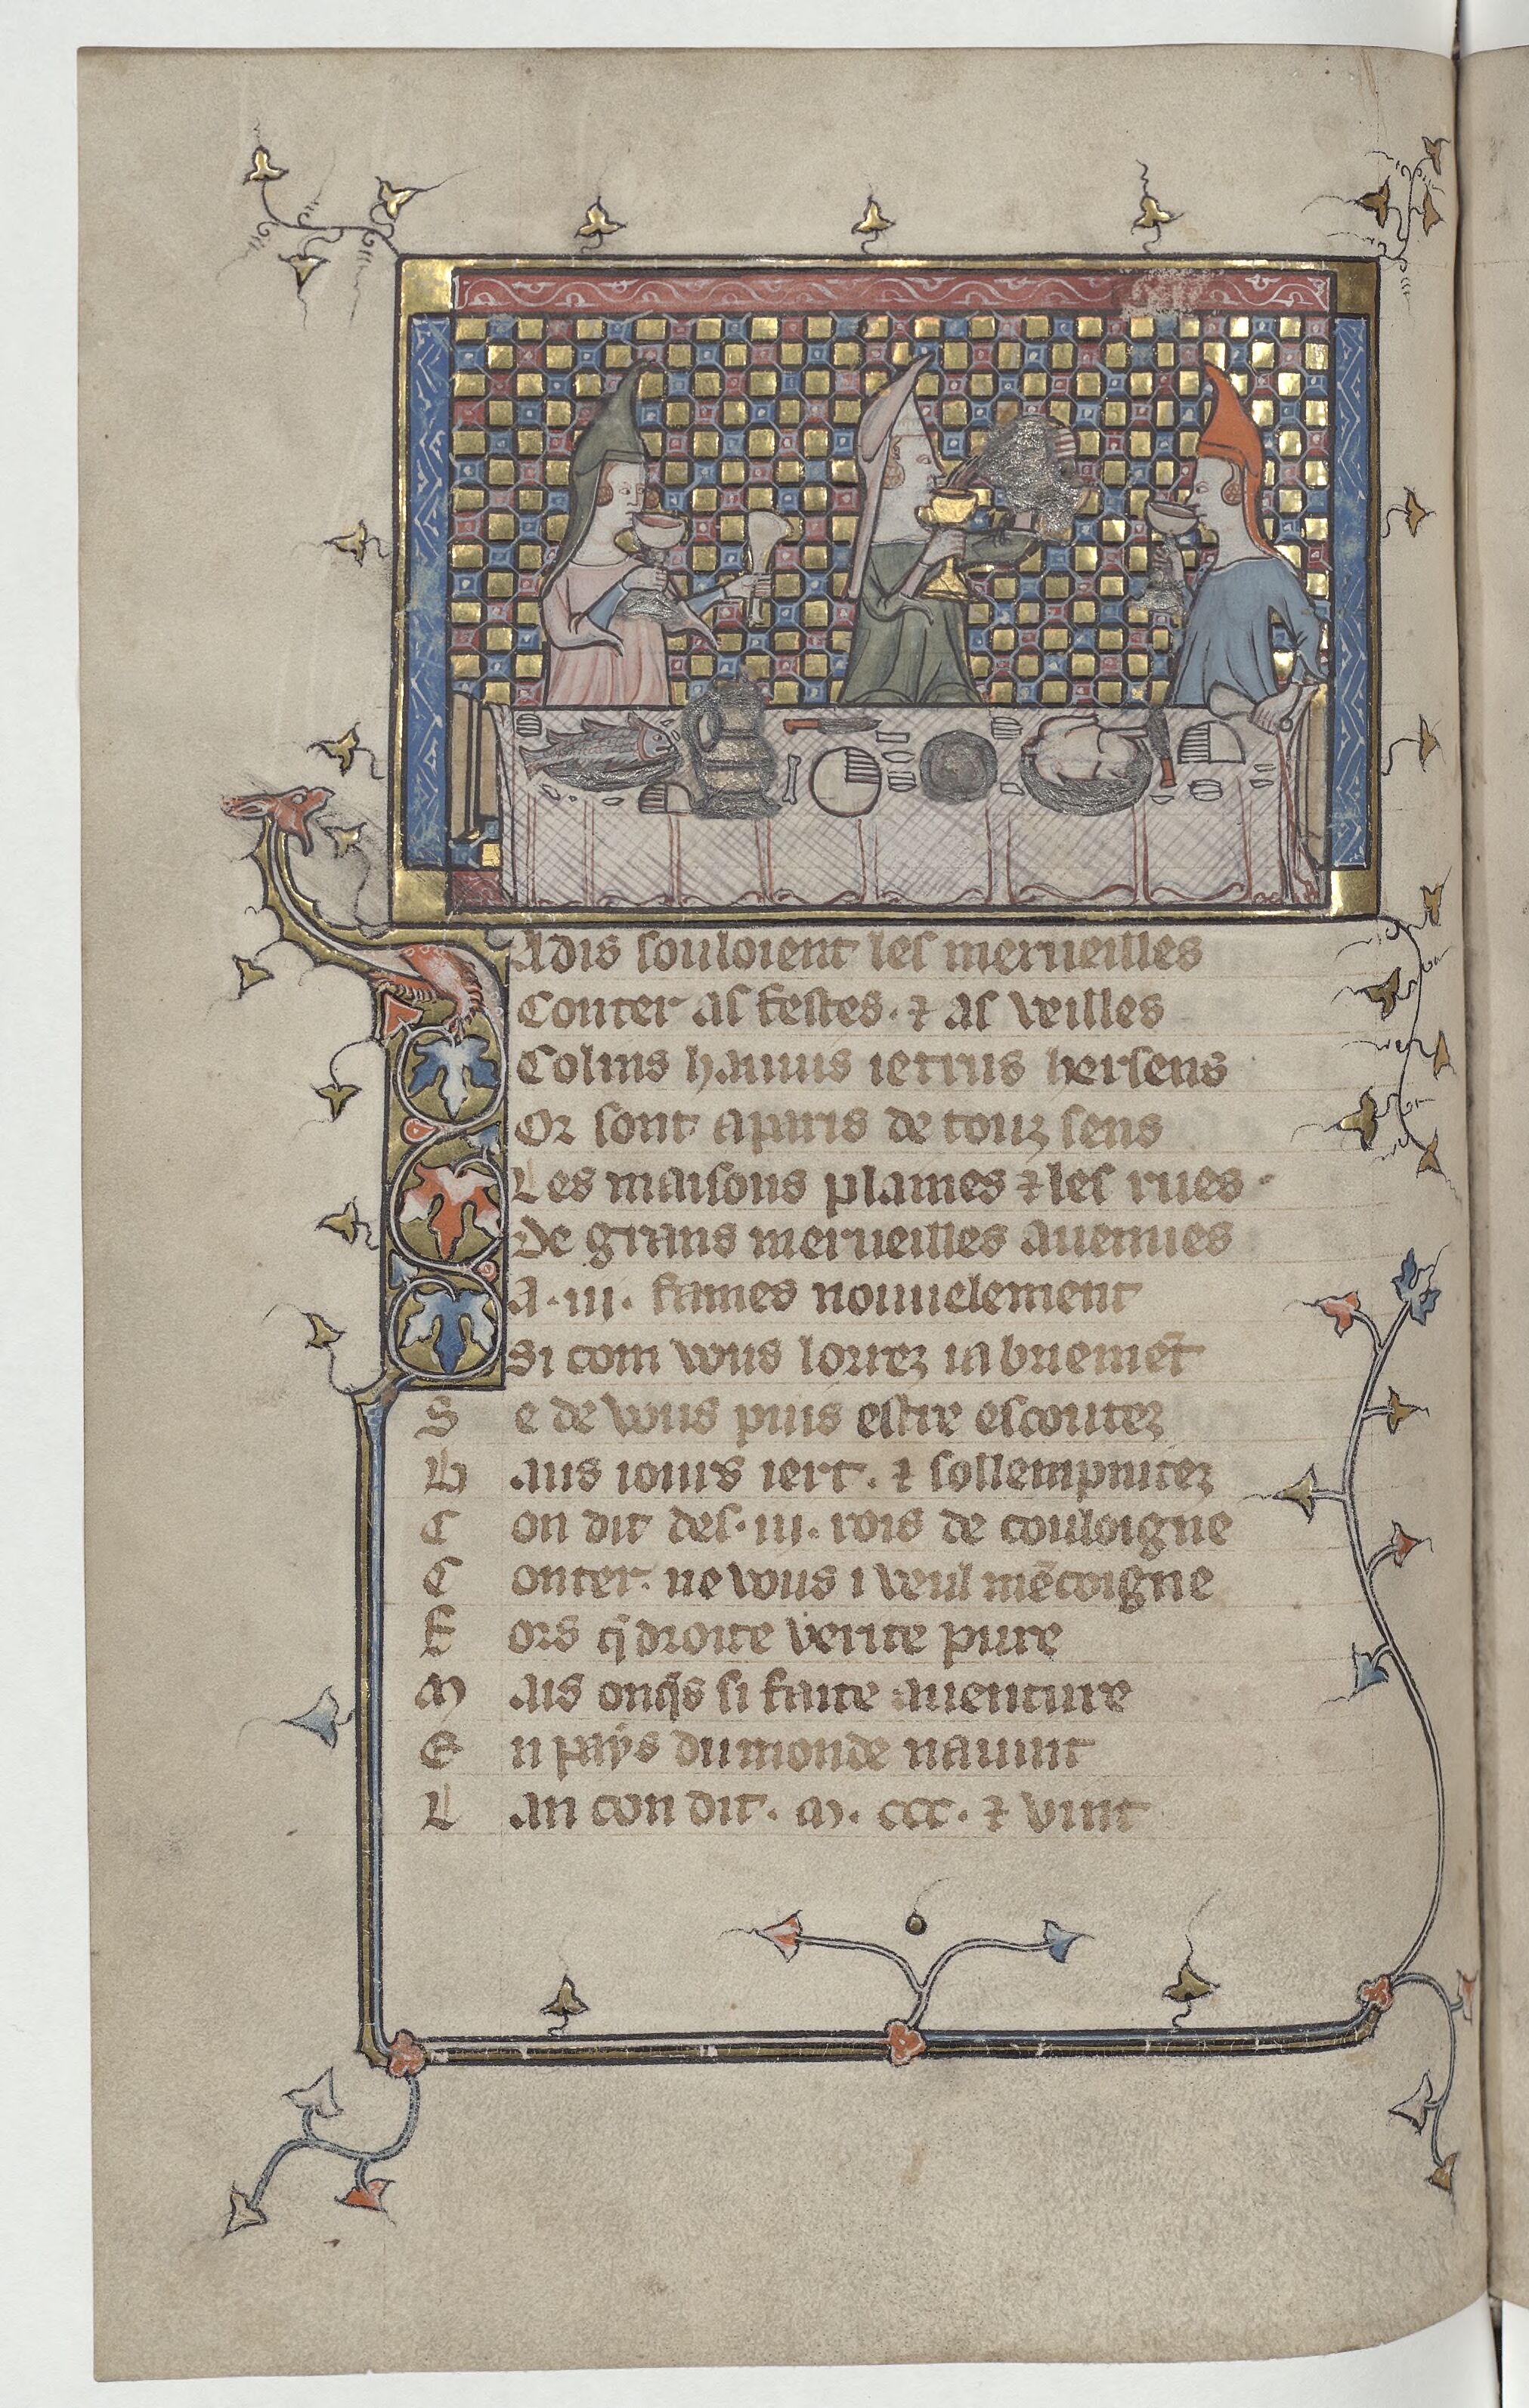 Jadis souloient les merueilles
Conter as festes . ⁊ as veilles
Colins hauuis ietrus hersens
Or sont a paris de touz sens
Les maisons plaines ⁊ les rues
De grans merueilles auenues
A .iii. fames nouuelement
Si com vous lorrez ia briemēt
Se de vous puis estre escoutez
Haus iours iert . ⁊ sollempnitez
Con dit des .iii. rois de couloigne
Conter . ne vous i veul mēcoigne
Fors q̄ droite verite pure
Mais onq̄s si faite auenture
En pays du monde nauint
Lan con dit . M . ccc . ⁊ vint